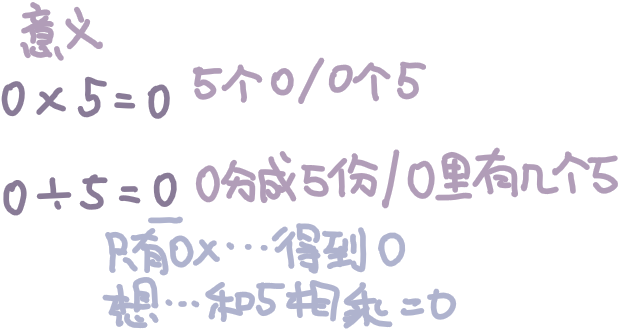 意义
0×5=0 5个0/0个5
0÷5=0 0分成5份/0里有几个5
只有0×…得到0
想…和5相乘=0